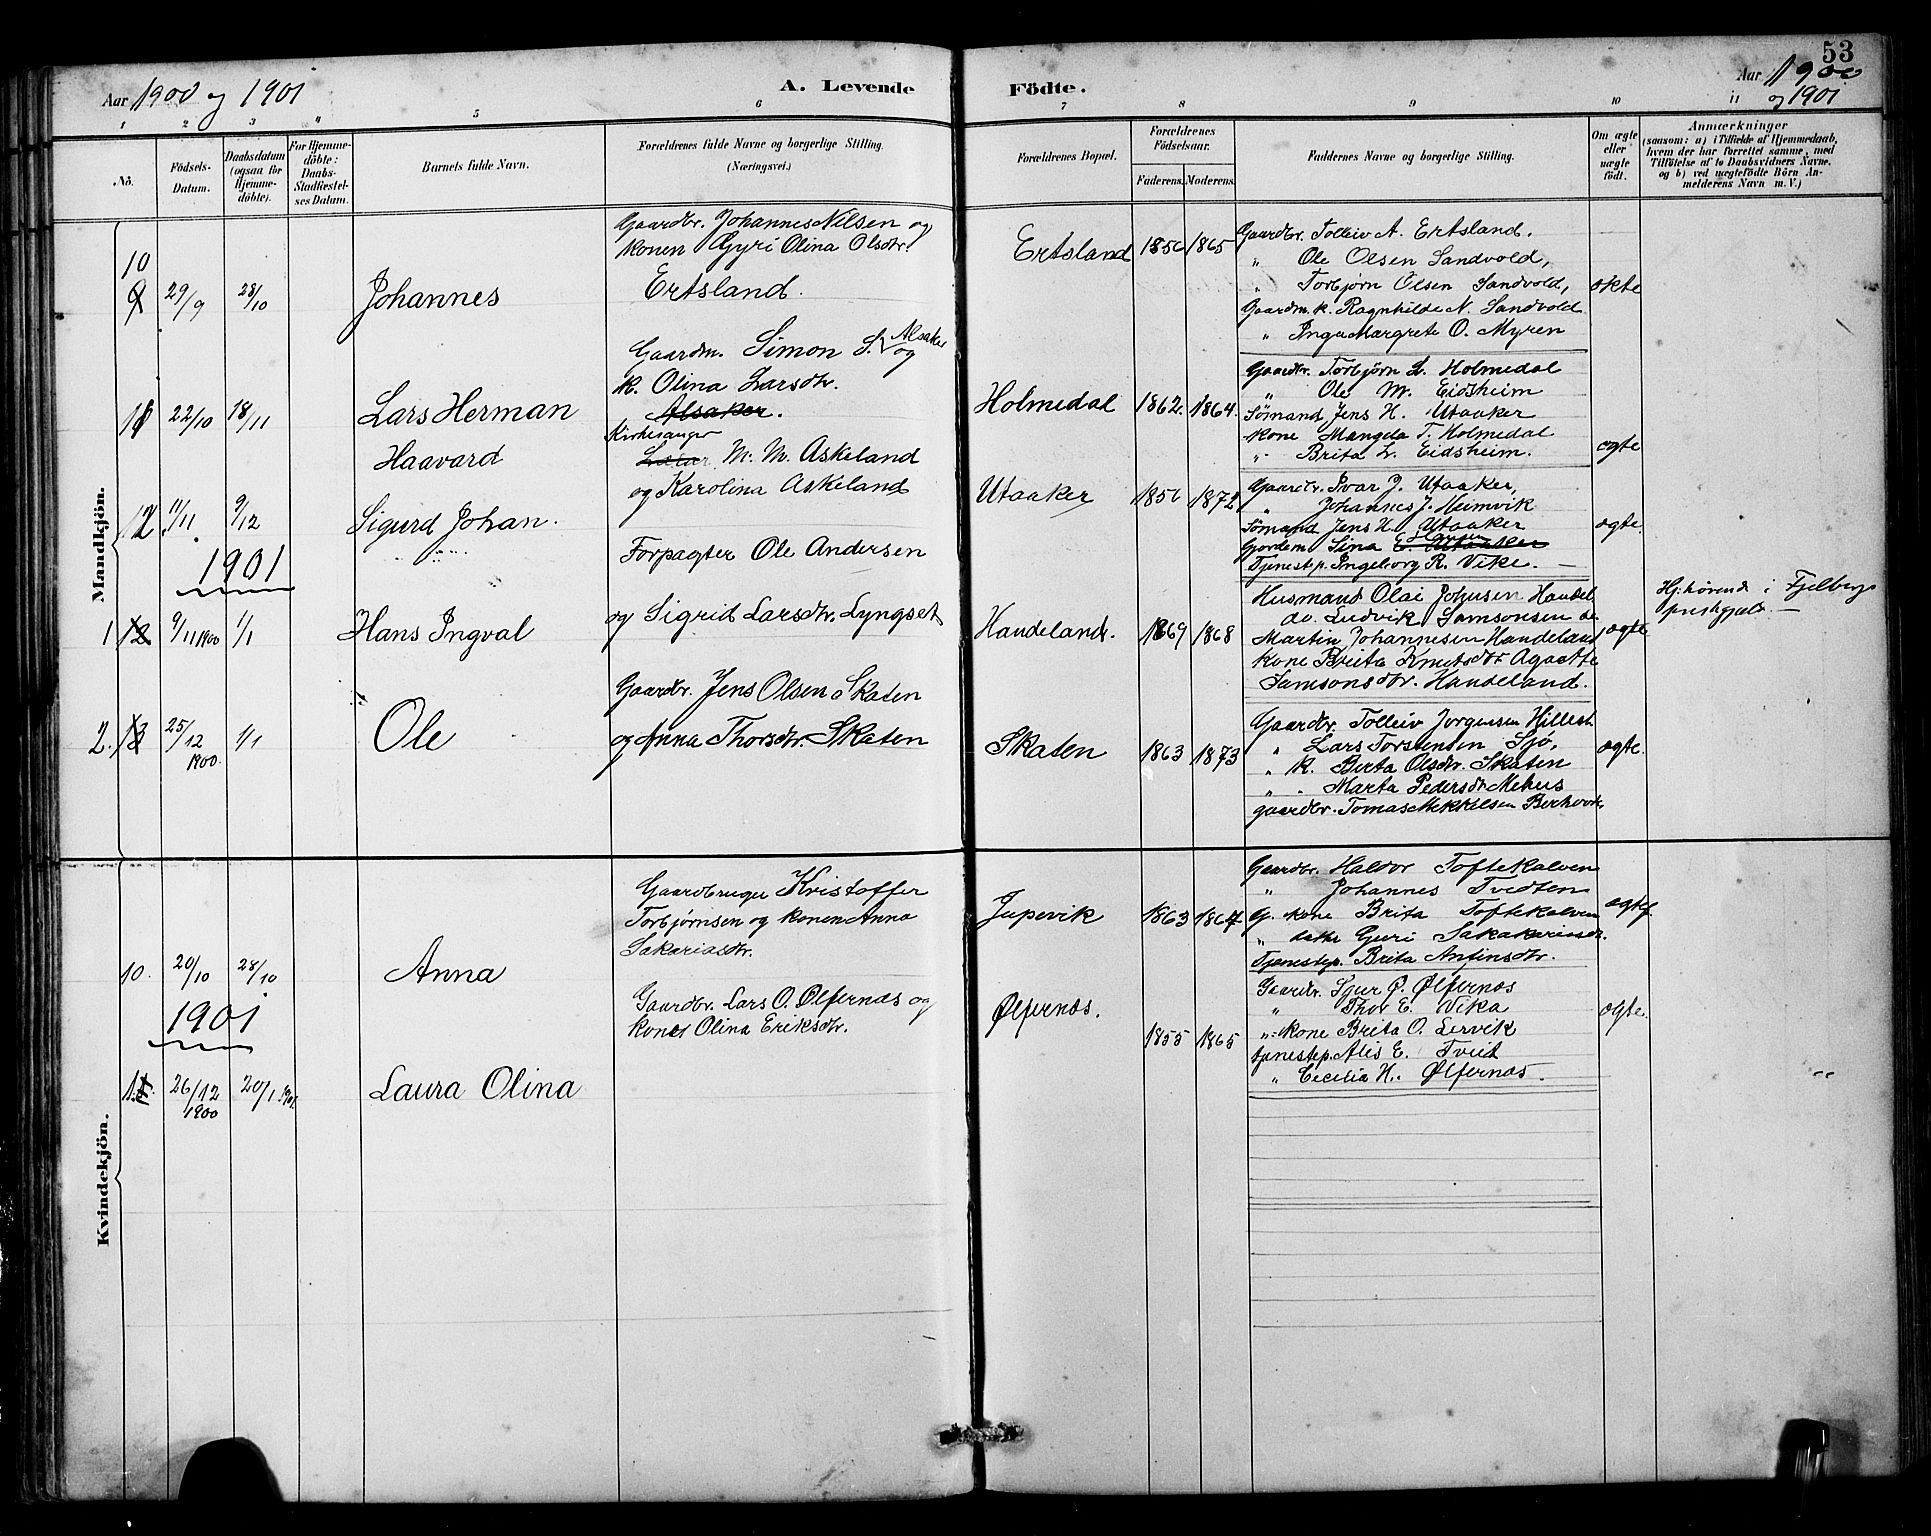 53
Aar 1900 og 1901
A. Levende Födte.
Aar 1900
og 1901
1 2 3 4 5 6 7 8 9 10 11
No.
Födsels-Datum.
Daabsdatum (ogsaa for Hjemme-döbte).
For Hjemme-döbte: Daabs-Stadfæstel-ses Datum.
Barnets fulde Navn.
Forældrenes fulde Navne og borgerlige Stilling. (Næringsvei.)
Forældrenes Bopæl.
Forældrenes Födselsaar.
Faderens. Moderens.
Faddernes Navne og borgerlige Stilling.
Om ægte eller uægte födt.
Anmærkninger
(saasom: a) i Tilfælde af Hjemmedaab, hvem der har forrettet samme, med Tilföielse af to Daabsvidners Navne, og b) ved uægtefödte Börn An-melderens Navn m. V.)
Mandkjön.
10
9 29/9 28/10 Johannes
Gaardbr. Johannes Nilsen og
konen Gyri Olina Olsdtr.
Ertsland.
Ertsland 1856 1865
Gaardbr. Tolleiv A. Ertsland.
" Ole Olsen Sandvold,
" Torbjørn Olsen Sandvold,
Gaardm. k. Ragnhilde N. Sandvold
" Inga Margrete O. Myren
ekte
11 22/10 18/11 Lars Herman
Gaardm. Simon S. Alsaker og
k. Olina Larsdtr.
Alsaker.
Holmedal 1862. 1864.
Gaardbr. Torbjørn L. Holmedal
" Ole M. Eidsheim
Sømand Jens H. Utaaker
Kone Mangela T. Holmedal
" Brita L. Eidsheim.
ægte
12 11/11 9/12 Haavard
Sigurd Johan.
Kirkesanger
Lærer M. M. Askeland
og Karolina Askeland
Utaaker 1856 1872
Gaardbr. Ivar J. Utaaker,
" Johannes J. Heimvik
Sømand Jens H. Utaaker
Gjordem. Sina E. Utaaker Hansen
Tjenestp. Ingeborg R. Vike.
ægte.
1901
1 12 9/11 1900 1/1 Hans Ingval
Forpagter Ole Andersen
og Sigrid Larsdtr. Lyngset
Handeland. 1869 1868
Husmand Olai Johnsen Handel
do. Ludvik Samsonsen do
Martin Johannesen Handeland
Kone Breita Knutsdtr Agaette
Samsonsdtr. Handeland.
ægte
Hjhørende i Fjelbergs
prestgjeld.
2. 13 25/12 1900. 1/1 Ole
Gaardbr. Jens Olsen Skaten
og Anna Thorsdtr. Skaten
Skaten 1863 1873
Gaardbr. Tolleiv Jorgensen Hillest.
" Lars Torstensen Sjø,
" k. Berta Olsdtr. Skaten
" " Marta Pedersdtr Mehus
gaardbr. Tomas Mikkelsen
ægte.
Kvindekjön.
10. 20/10 28/10 Anna
Gaardbruger Kristoffer
Torbjørnsen og konen Anna
Sakariasdtr.
Jupevik 1863 1867
Gaardbr. Haldor Toftekalven
" Johannes Tvedten
G. kone Brita Toftekalven
" datter Guri Sakakariasdtr.
Tjenestep. Brita Anfinsdtr.
ægte.
1901
1. 26/12 1900 20/1 1901. Laura Olina
Gaardbr. Lars O. Ølfernæs og
kone Olina Eriksdtr.
Ølfernæs. 1855 1865
Gaardbr. Sjur Ø. Ølfernæs
" Thor E. Vika
" kone Brita O. Lervik
tjenestep. Alis E. Tveit
" Cecilia H. Ølfernæs.
ægte.